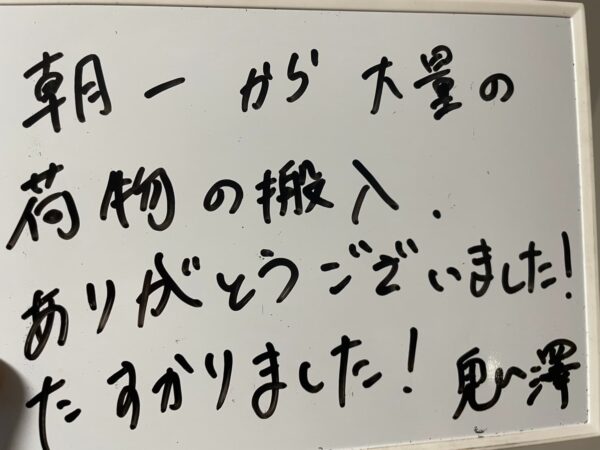 朝一から大量の
荷物の搬入.
ありがとうございました!
たすかりました! 鬼澤